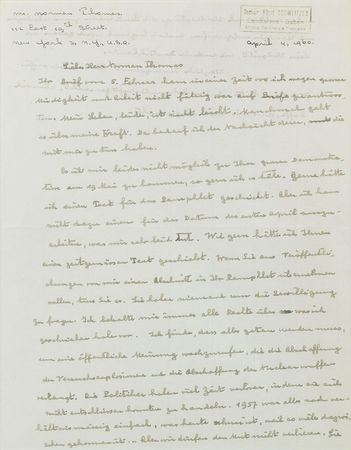 Mr. Norman Thomas.
112 East 19th Street.
New York 3, N.Y., U.S.A.
Docteur Albert SCHWEITZER
Lambaréné - Gabon
April 4, 1960.
Lieber Herr Norman Thomas
Ihr Brief vom 5. Februar kam in einer Zeit wo ich wegen grosser
Müdigkeit und Arbeit nicht fähig war auf Briefe zu antworten.
Mein Leben, leider, ist nicht leicht. Manchmal geht
es über meine Kraft. Da bedarf ich der Nachsicht derer, die
mit mir zu tun haben.
Es ist mir leider nicht möglich zu Ihrer grossen Demonstration
am 19 Mai zu kommen, so gern ich es täte. Gerne hätte
ich einen Text für das Pamphlet geschickt. Aber ich kann
nicht einen für das Datum des ersten April ausgearbeiten,
was mir sehr leid tut. Wie gern hätte ich Ihnen
einen geschickt. Wenn Sie aus Veröffentlichungen
von mir einen Abschnitt in Ihr Pamphlet übernehmen
wollen, tun Sie es. Sie haben niemand um die Bewilligung
zu fragen. Ich behalte mir immer alle Rechte über was ich
geschrieben habe vor. Ich finde, dass alles getan werden muss,
um eine öffentliche Meinung wachzurufen, die die Abschaffung
der Versuchsexplosionen und die Abschaffung der Nuclearwaffen
verlangt. Die Politiker haben viel Zeit verloren, indem sie sich
nicht entschliessen konnten zu handeln. 1957 war alles noch verhältnismässig
einfach, was heute schwer ist, weil so vieles dazwischen
gekommen ist... Aber wir dürfen den Mut nicht verlieren. Sie